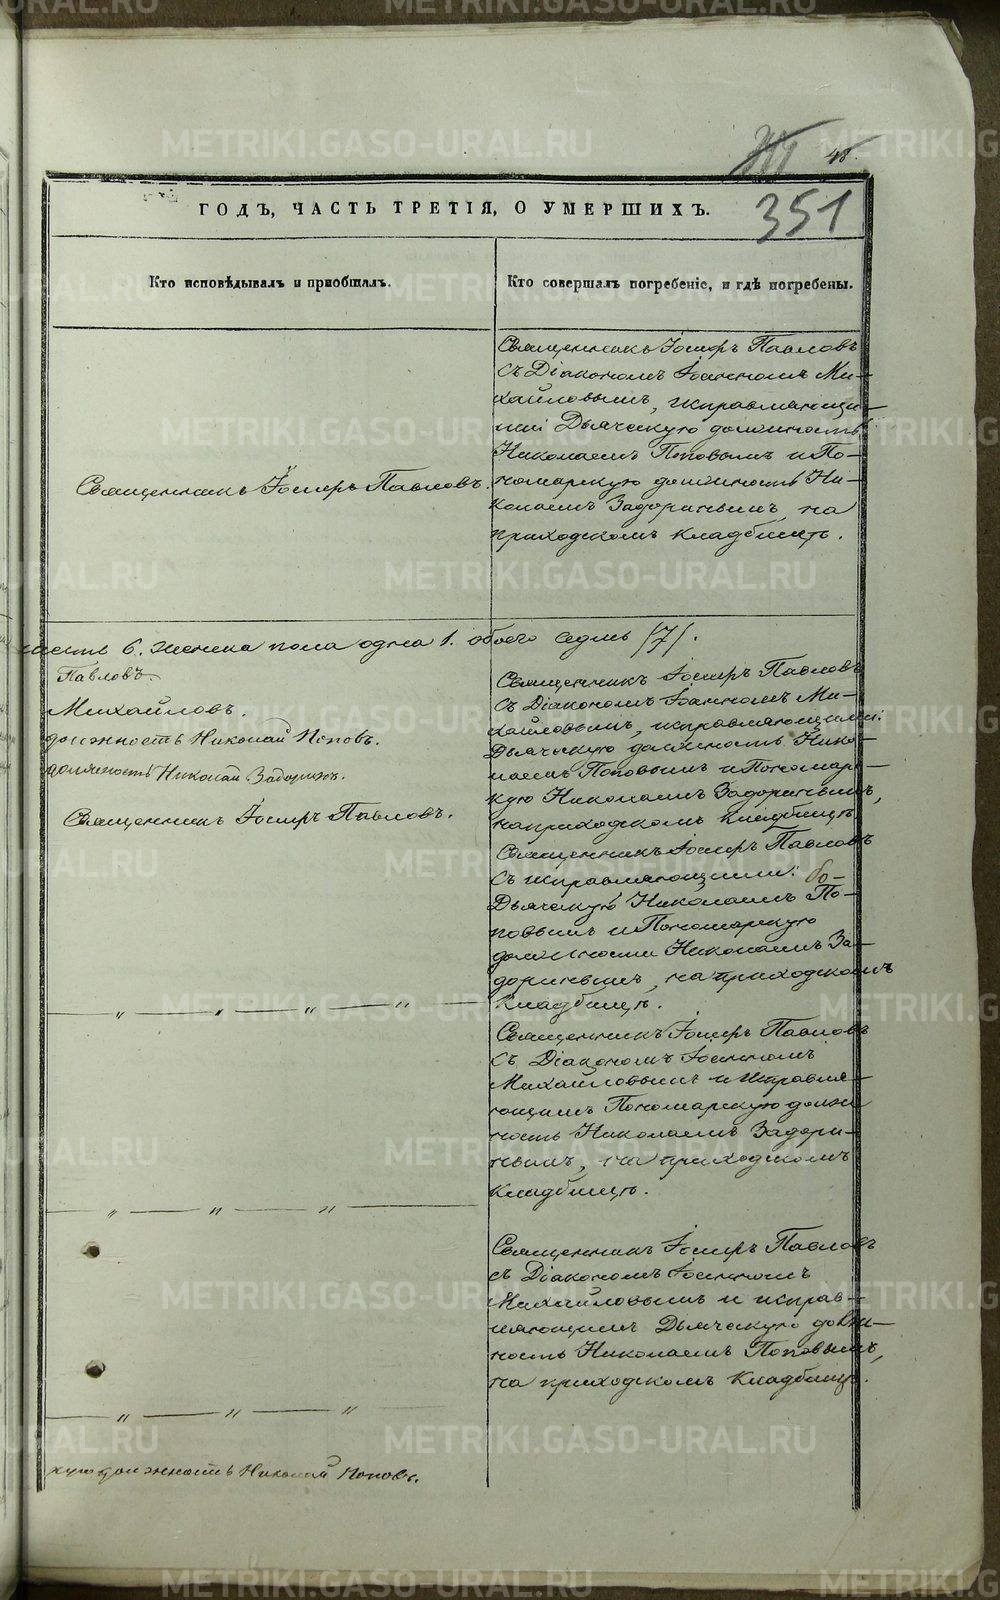 48.
351
ГОДЪ, ЧАСТЬ ТРЕТІЯ, О УМЕРШИХЪ.
Кто исповѣдывалъ и пріобщалъ.
Кто совершалъ погребеніе, и гдѣ погребены.
Священникъ Іосифъ Павловъ.
Священникъ Іосифъ Павловъ
съ Діакономъ Іоанномъ Ми-
хайловымъ, исправляющи-
ми Дьяческую должность
Николаемъ Поповымъ и По-
номарскую должность Ни-
колаемъ Задоринымъ, на
приходскомъ кладбищѣ.
шесть 6. женска пола одна 1. обоего седмь /7/.
Павловъ.
Михайловъ.
должность Николай Поповъ.
должность Николай Задоринъ.
Священникъ Іосифъ Павловъ.
Священникъ Іосифъ Павловъ
съ Діакономъ Іоанномъ Ми-
хайловымъ, исправляющими:
Дьяческую должность Нико-
лаемъ Поповымъ и Пономар-
скую Николаемъ Задоринымъ,
на приходскомъ кладбищѣ.
Священникъ Іосифъ Павловъ
съ исправляющими: до-
Дьяческую Николаемъ По-
повымъ и Пономарскую
должности Николаемъ За-
доринымъ, на приходскомъ
кладбищѣ.
— „ — „ — „ — „ —
Священникъ Іосифъ Павловъ
съ Діакономъ Іоанномъ
Михайловымъ и исправля-
ющимъ Пономарскую долж-
ность Николаемъ Задори-
нымъ, на приходскомъ
кладбищѣ.
— „ — „ — „ —
Священникъ Іосифъ Павловъ
съ Діакономъ Іоанномъ
Михайловымъ и исправ-
ляющимъ Дьяческую долж-
ность Николаемъ Поповымъ,
на приходскомъ кладбищѣ.
— „ — „ — „
скую должность Николай Поповъ.
METRIKI.GASO-URAL.RU